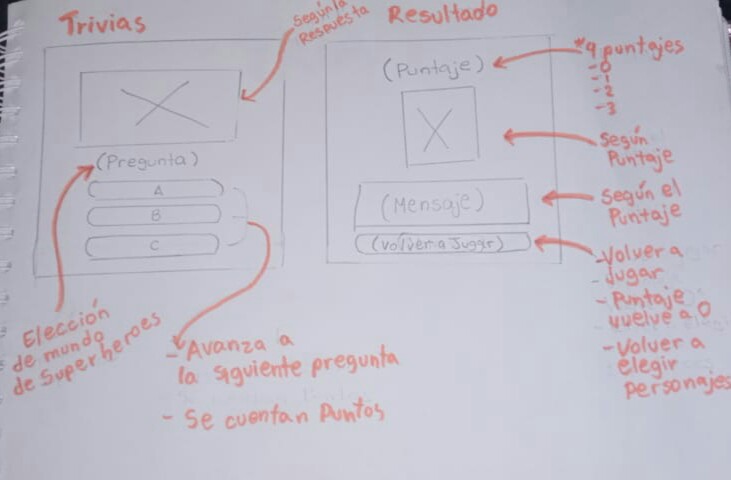 Trivias
Según la
Respuesta
(Pregunta)
A
B
C
Elección
de mundo
de Superheroes
- Avanza a
la siguiente pregunta
- Se cuentan Puntos
Resultado
(Puntaje)
*4 puntajes
-0
-1
-2
-3
Según
Puntaje
(Mensaje)
Según el
Puntaje
(Volver a Jugar)
-Volver a
Jugar
- Puntaje
vuelve a 0
- Volver a
elegir
personajes